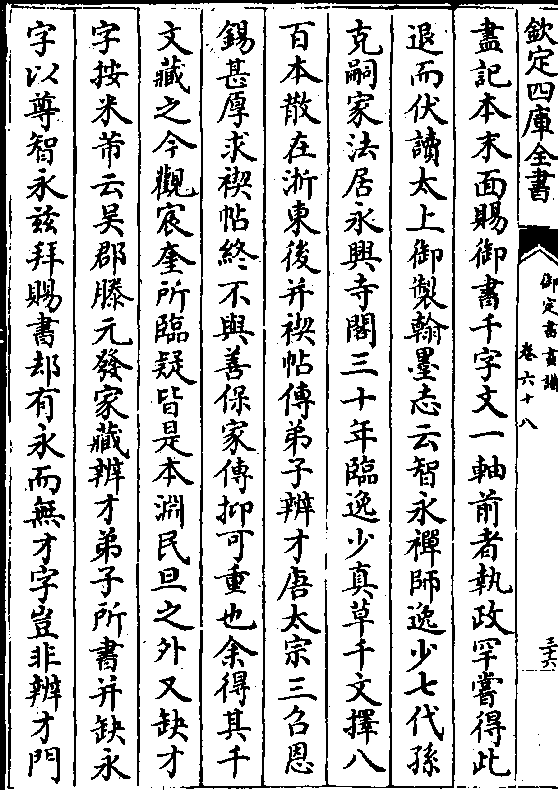 欽定四庫全書
御定書畫譜
卷六十八
三十六
盡記本末面賜御書千字文一軸前者執政罕嘗得此
退而伏讀太上御製翰墨志云智永禪師逸少七代孫
克嗣家法居永興寺閣三十年臨逸少真草千文擇八
百本散在浙東後并禊帖傳弟子辨才唐太宗三召恩
錫甚厚求禊帖終不與善保家傳抑可重也余得其千
文藏之今觀宸奎所臨疑皆是本淵民旦之外又缺才
字按米芾云吳郡滕元發家藏辨才弟子所書并缺永
字以尊智永兹拜賜書却有永而無才字豈非辨才門